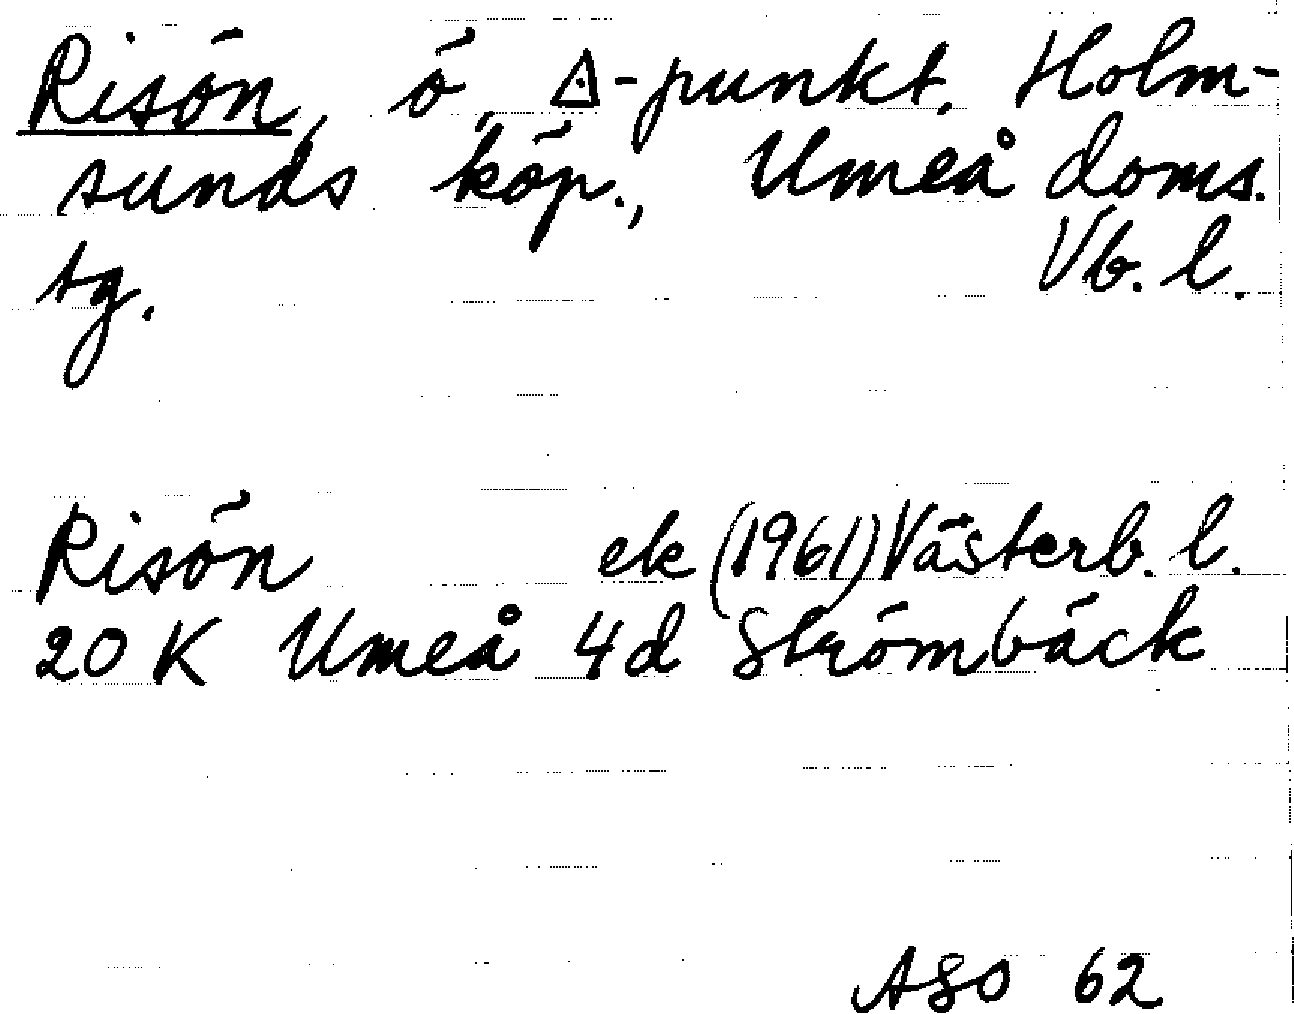 Risön, ö, △-punkt, Holm-
sunds köp., Umeå doms.
tg. Vb. l.
Risön ek (1961) Västerb. l.
20 K Umeå 4d Strömbäck
ASO 62